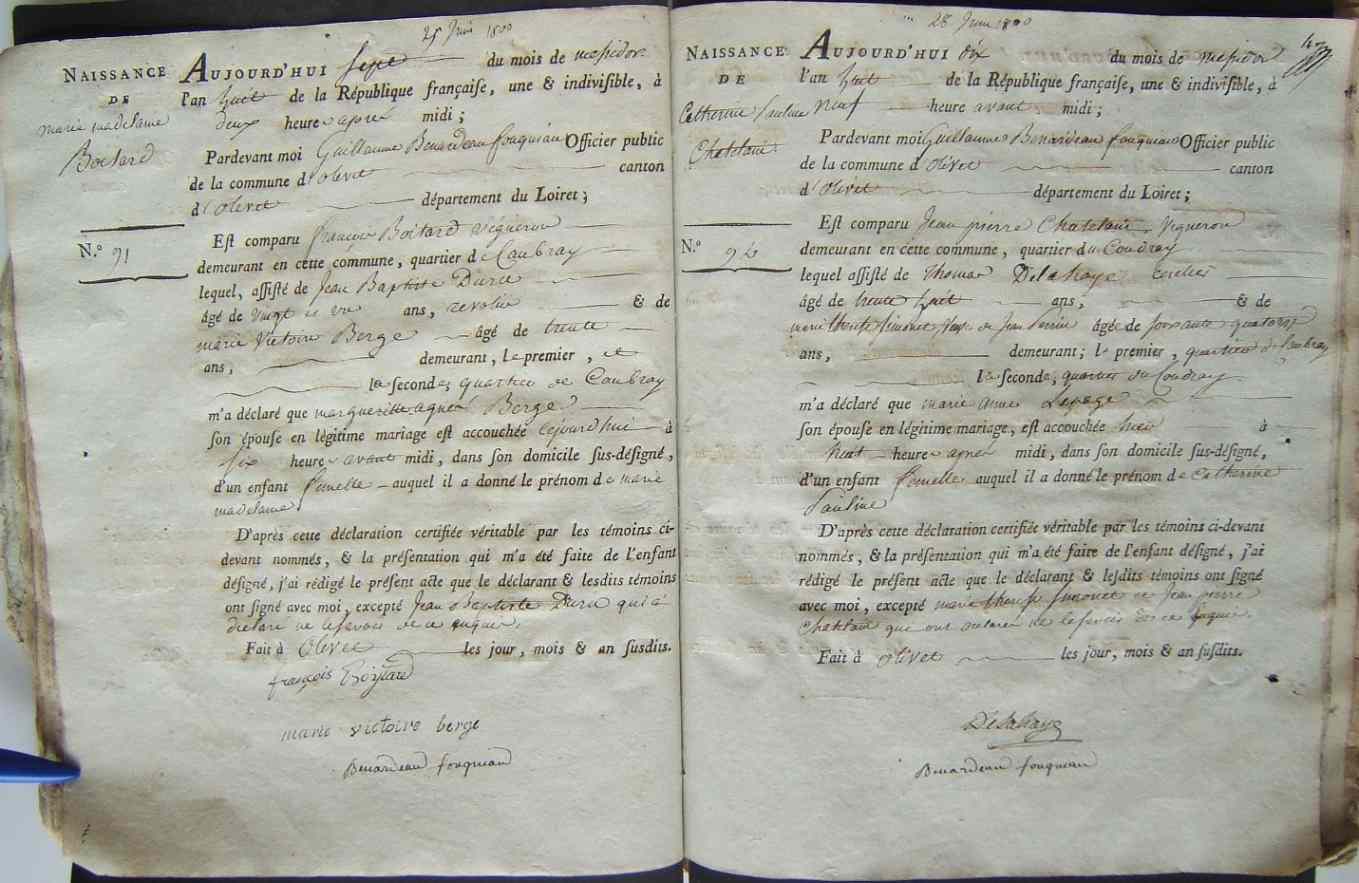 25 Juin 1800
NAISSANCE
DE
marie madelaine
Boitard
N.º 91
AUJOURD'HUI sept du mois de messidor
l'an huit de la République françaiſe, une & indiviſible, à
deux heure apres midi ;
Pardevant moi Guillaume Benardeau fouqueau Officier public
de la commune d'olivet canton
d'olivet département du Loiret ;
Eſt comparu françois Boitard vigneron
demeurant en cette commune, quartier de Caubray
lequel, aſſiſté de Jean Baptiste Duru
âgé de vingt ans, revolu & de
marie Victoire Berge âgé de trente
ans, demeurant, le premier, et
la seconde, quartier de Caubray
m'a déclaré que margueritte agnes Berge
ſon épouse en légitime mariage eſt accouchée cejourdhui à
six heure avant midi, dans ſon domicile ſus-déſigné,
d'un enfant femelle auquel il a donné le prénom de marie
madelaine
D'après cette déclaration certifiée véritable par les témoins ci-
devant nommés, & la préſentation qui m'a été faite de l'enfant
déſigné, j'ai rédigé le préſent acte que le déclarant & leſdits témoins
ont ſigné avec moi, excepté Jean Baptiste Duru qui a
declaré ne le savoir de ce
Fait à Olivet les jour, mois & an ſuſdits.
françois Boistard
marie victoire berge
Benardeau fouqueau
28 Juin 1800
NAISSANCE
DE
Catherine Pauline
Chatelain
N.º 92
AUJOURD'HUI dix du mois de messidor
l'an huit de la République françaiſe, une & indiviſible, à
neuf heure avant midi ;
Pardevant moi Guillaume Benardeau fouqueau Officier public
de la commune d'olivet canton
d'olivet département du Loiret ;
Eſt comparu Jean pierre Chatelain Vigneron
demeurant en cette commune, quartier du Coudray
lequel aſſiſté de thomas Delahaye
âgé de trente huit ans, & de
marie therese Simonet de Jean âgée de soixante quatorze
ans, demeurant ; le premier, quartier de Caubray
la seconde, quartier du Coudray
m'a déclaré que marie anne Lepage
ſon épouſe en légitime mariage, eſt accouchée hier à
huit heure apres midi, dans ſon domicile ſus-déſigné,
d'un enfant femelle auquel il a donné le prénom de Catherine
Pauline
D'après cette déclaration certifiée véritable par les témoins ci-devant
nommés, & la préſentation qui m'a été faite de l'enfant déſigné, j'ai
rédigé le préſent acte que le déclarant & leſdits témoins ont ſigné
avec moi, excepté marie therese Simonet et Jean pierre
Chatelain qui ont declarer ne le savoir de ce
Fait à olivet les jour, mois & an ſuſdits.
Delahaye
Benardeau fouqueau